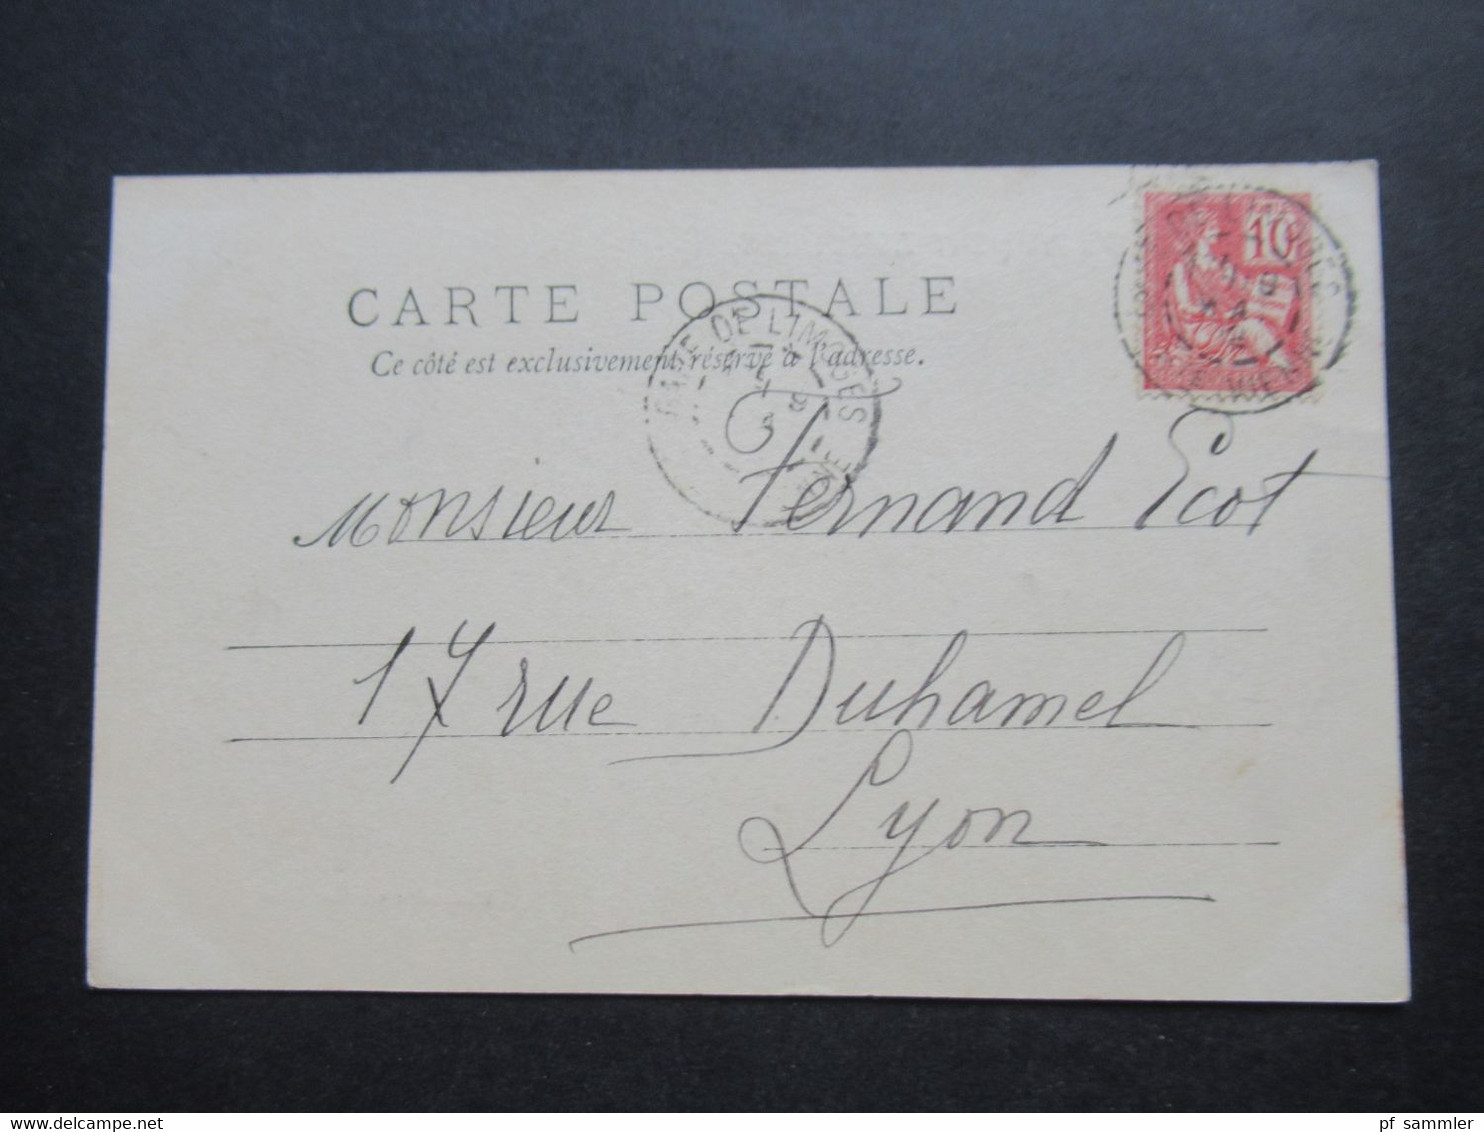 CARTE POSTALE
Ce côté est exclusivement réservé à l'adresse.
10
GARE DE LIMOGES
Monsieur Fernand Ecot
17 rue Duhamel
Lyon
pf_sammler